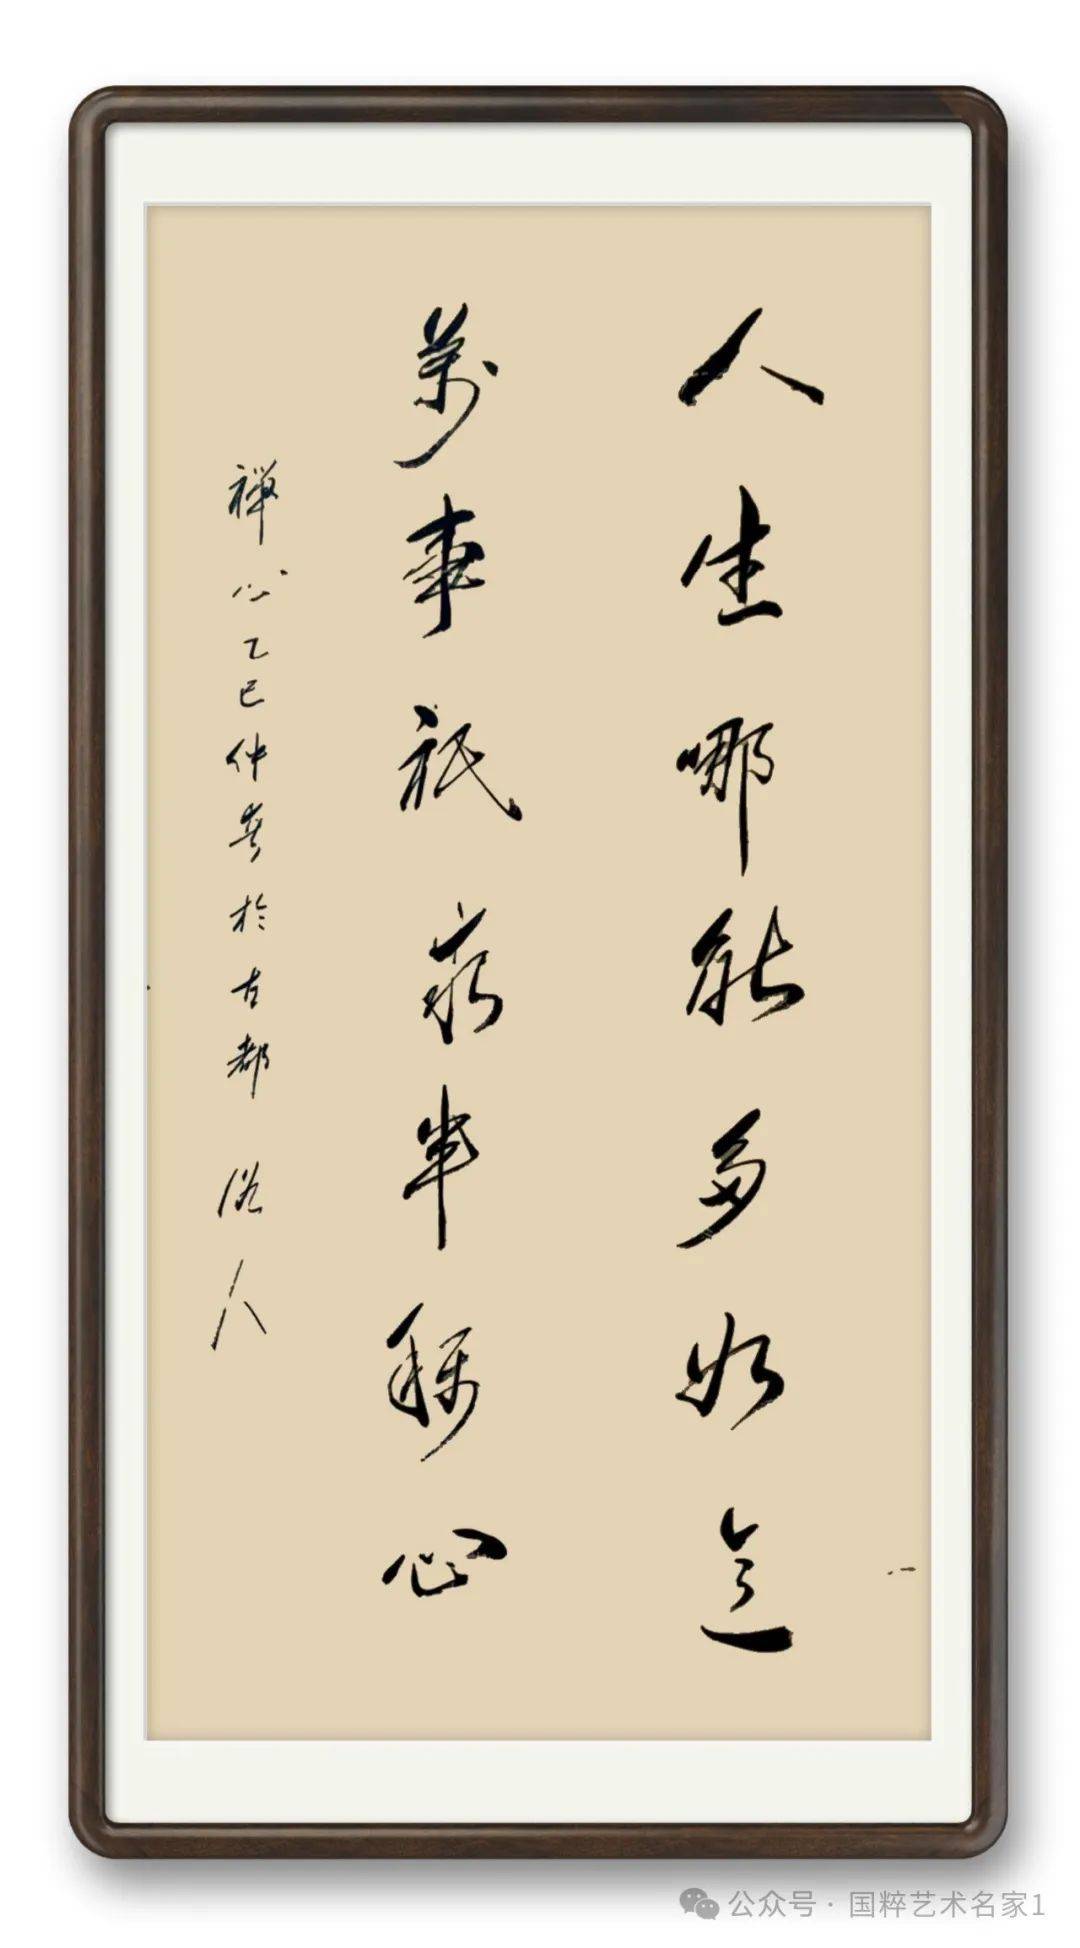 人生哪能多如意
萬事祇求半稱心
禪心乙巳仲春於古都 人
公众号 · 国粹艺术名家1